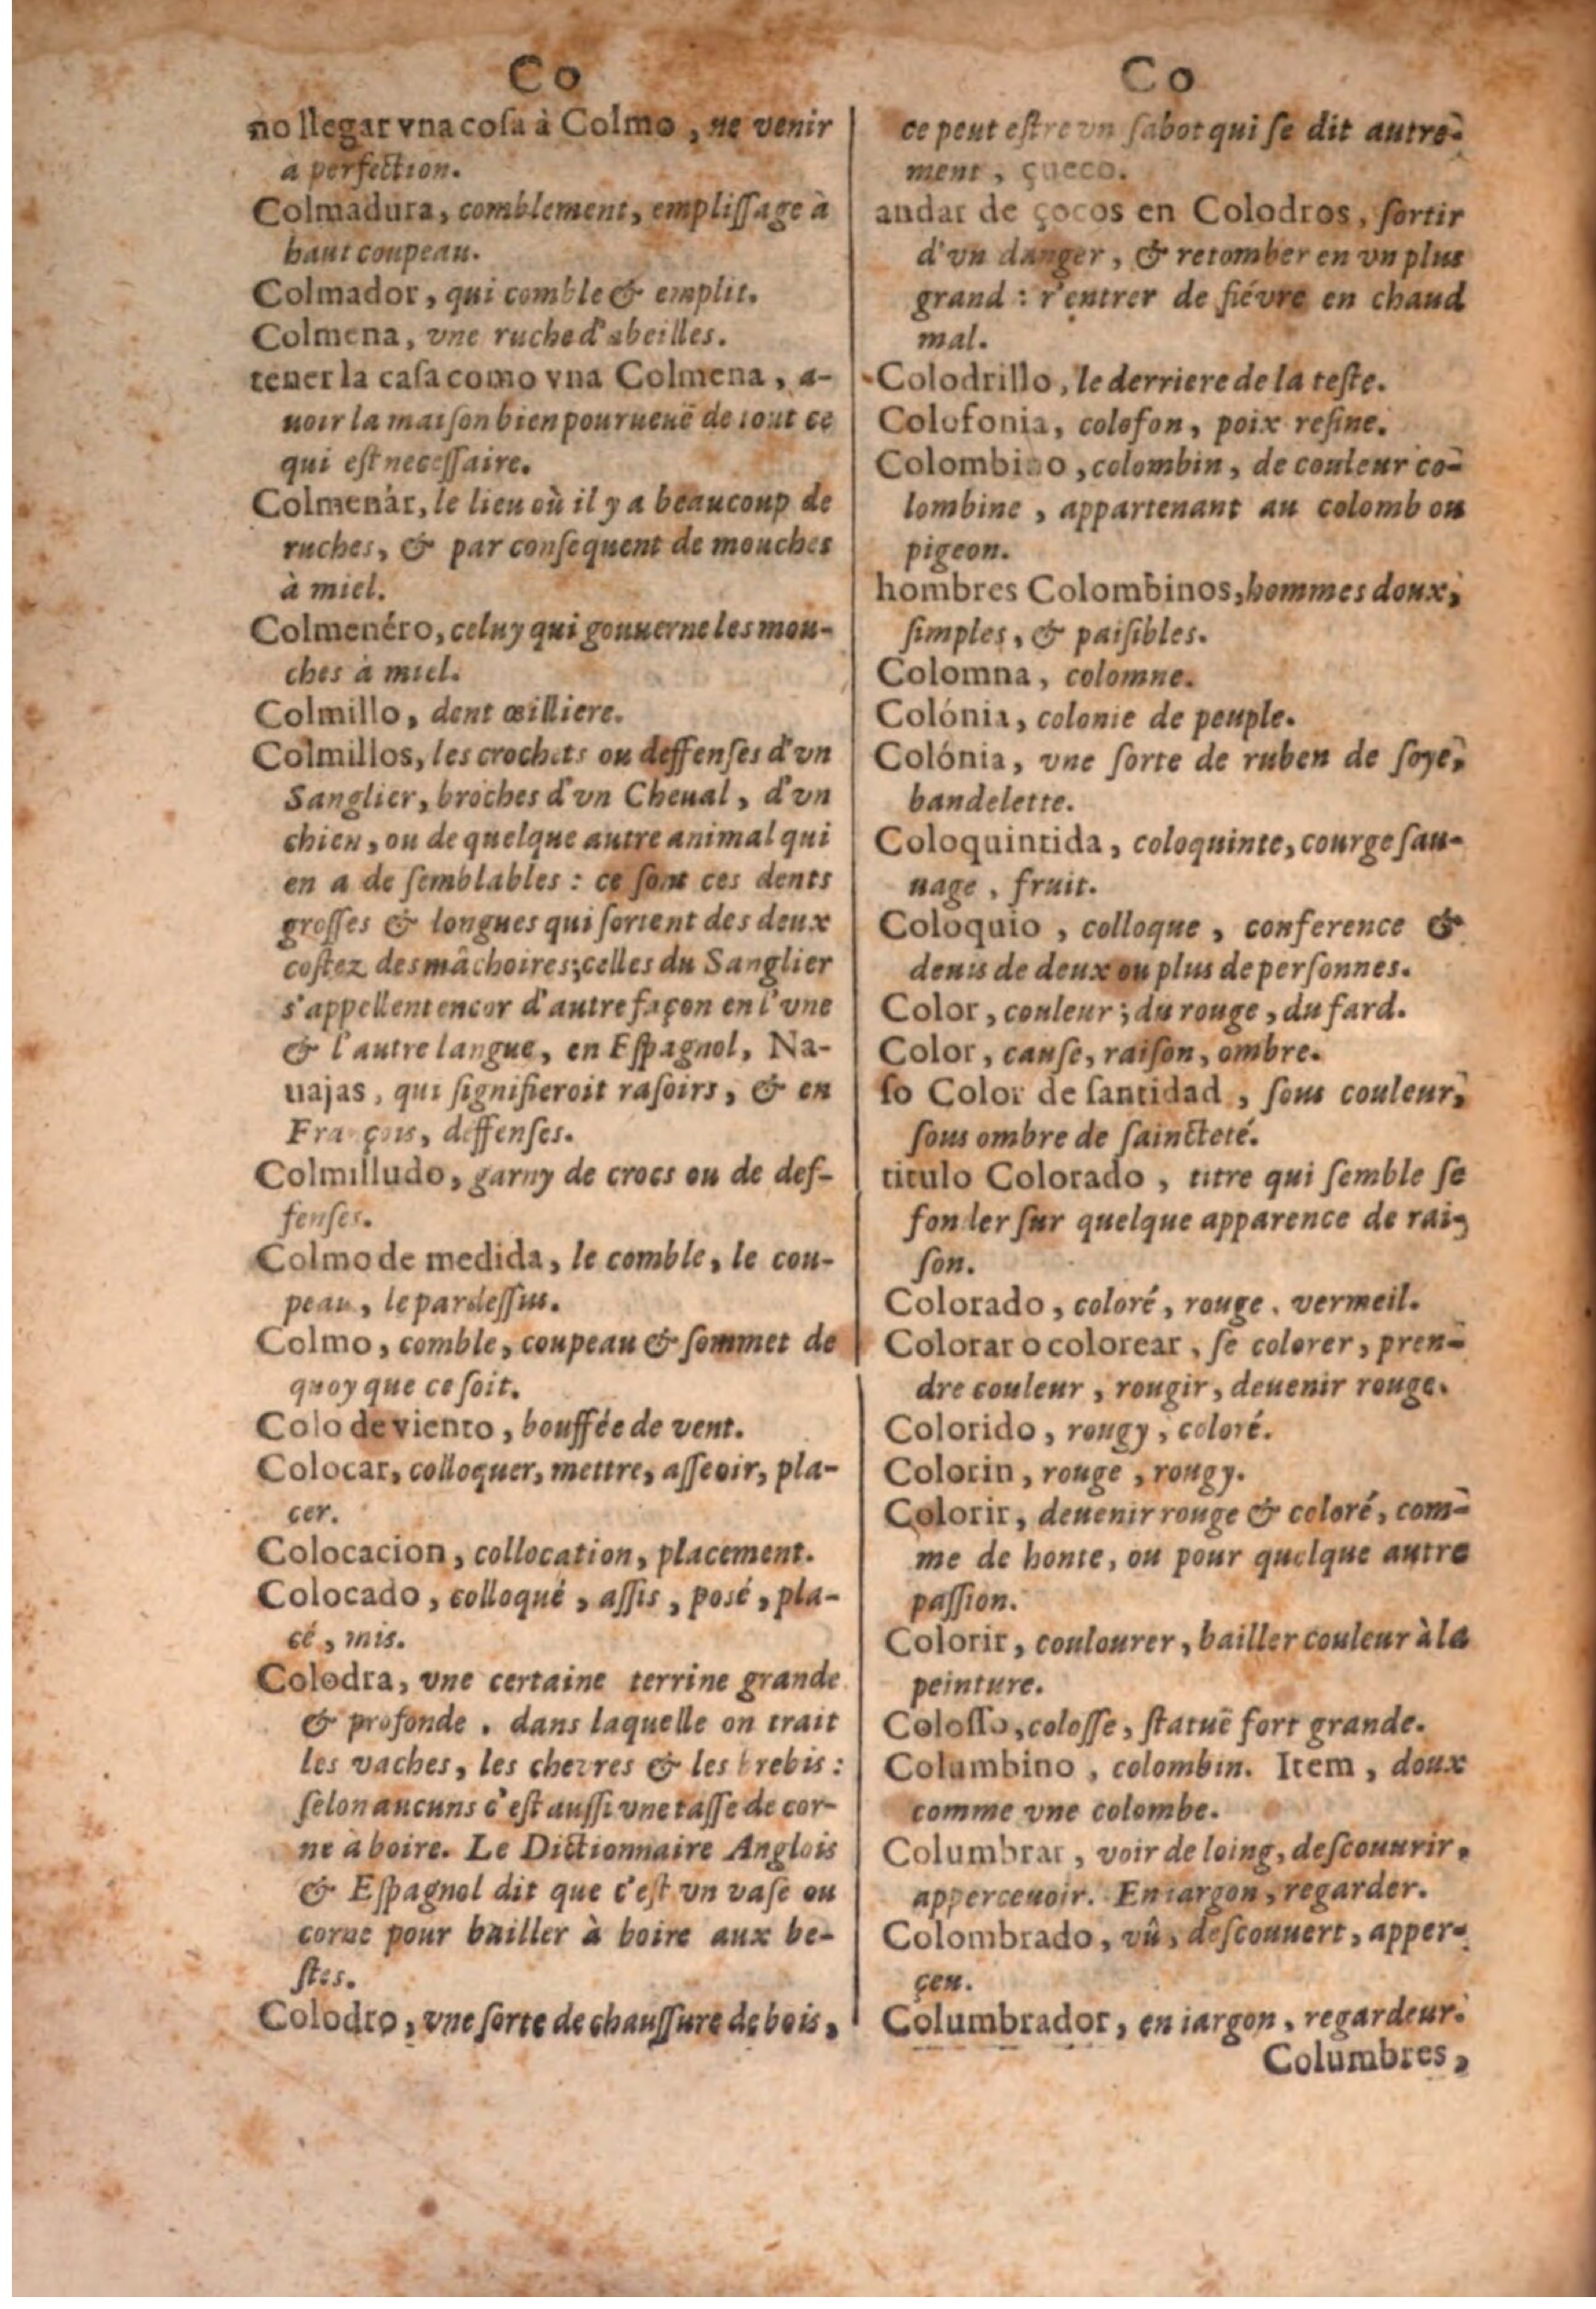 Co
no llegar vna coſa à Colmo, ne venir
a perfection.
Colmadura, comblement, empliſſage à
haut coupeau.
Colmador, qui comble & emplit.
Colmena, vne ruche d'abeilles.
tener la caſa como vna Colmena, a-
uoir la maiſon bien pourueuë de tout ce
qui eſt neceſſaire.
Colmenàr, le lieu où il y a beaucoup de
ruches, & par conſequent de mouches
à miel.
Colmenéro, celuy qui gouuerne les mou-
ches à miel.
Colmillo, dent œilliere.
Colmillos, les crochets ou deffenſes d'vn
Sanglier, broches d'vn Cheual, d'vn
chien, ou de quelque autre animal qui
en a de ſemblables : ce ſont ces dents
groſſes & longues qui ſortent des deux
coſtez des mâchoires; celles du Sanglier
s'appellent encor d'autre façon en l'vne
& l'autre langue, en Eſpagnol, Na-
uajas, qui ſignifieroit raſoirs, & en
François, deffenſes.
Colmilludo, garny de crocs ou de def-
fenſes.
Colmo de medida, le comble, le cou-
peau, le pardeſſus.
Colmo, comble, coupeau & ſommet de
quoy que ce ſoit.
Colo de viento, bouffée de vent.
Colocar, colloquer, mettre, aſſeoir, pla-
cer.
Colocacion, collocation, placement.
Colocado, colloqué, aſſis, posé, pla-
cé, mis.
Colodra, vne certaine terrine grande
& profonde, dans laquelle on trait
les vaches, les chevres & les brebis :
ſelon aucuns c'eſt auſſi vne taſſe de cor-
ne à boire. Le Dictionnaire Anglois
& Eſpagnol dit que c'eſt vn vaſe ou
corne pour bailler à boire aux be-
ſtes.
Colodro, vne ſorte de chauſſure de bois,
Co
ce peut eſtre vn ſabot qui ſe dit autre-
ment, çueco.
andar de çocos en Colodros, ſortir
d'vn danger, & retomber en vn plus
grand : r'entrer de fiévre en chaud
mal.
Colodrillo, le derriere de la teſte.
Colofonia, colofon, poix reſine.
Colombino, colombin, de couleur co-
lombine, appartenant au colomb ou
pigeon.
hombres Colombinos, hommes doux,
ſimples, & paiſibles.
Colomna, colomne.
Colónia, colonie de peuple.
Colónia, vne ſorte de ruben de ſoye,
bandelette.
Coloquintida, coloquinte, courge ſau-
uage, fruit.
Coloquio, colloque, conference &
denis de deux ou plus de perſonnes.
Color, couleur; du rouge, du fard.
Color, cauſe, raiſon, ombre.
ſo Color de ſantidad, ſous couleur,
ſous ombre de ſaincteté.
titulo Colorado, titre qui ſemble ſe
fonder ſur quelque apparence de rai-
ſon.
Colorado, coloré, rouge, vermeil.
Colorar o colorear, ſe colorer, pren-
dre couleur, rougir, deuenir rouge.
Colorido, rougy, coloré.
Colorin, rouge, rougy.
Colorir, deuenir rouge & coloré, com-
me de honte, ou pour quelque autre
paſſion.
Colorir, coulourer, bailler couleur à la
peinture.
Coloſſo, coloſſe, ſtatuë fort grande.
Columbino, colombin. Item, doux
comme vne colombe.
Columbrar, voir de loing, deſcouurir,
apperceuoir. En iargon, regarder.
Colombrado, vû, deſcouuert, apper-
çeu.
Columbrador, en iargon, regardeur.
Columbres,